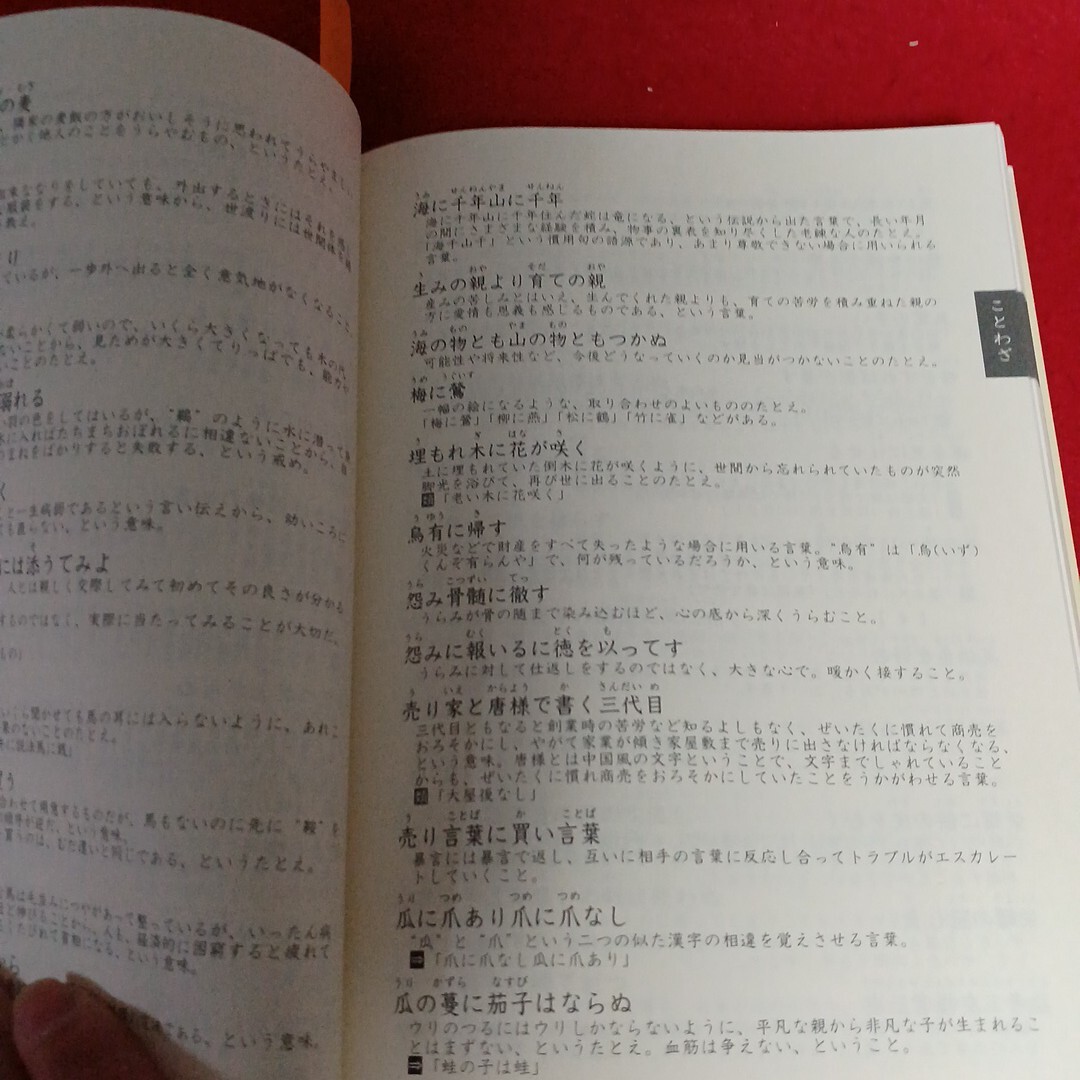 の麦
隣家の麦飯の方がおいしそうに思われてうらやましい
とかく他人のことをうらやむもの、というたとえ。
ていても、外出するときには
という意味から、世渡りには世間体を
ているが、一歩外へ出ると全く意気地がなくなること
柔らかくて弱いので、いくら大きくなっても木の代
ないことから、見ためが大きくてりっぱでも、
いことのたとえ。
溺れる
羽の色をしてはいるが、"鵜"のように水に潜って
水に入ればたちまちおぼれるに相違ないことから、
まねをばかりすると失敗する、という戒め。
く
と一生病師であるという言い伝えから、幼いころに
も直らない、という意味。
には添うてみよ
人とは親しく交際してみて初めてその良さが分かる
するのではなく、実際に当たってみることが大切だ。
いくら聞かせても馬の耳には入らないように、あれこ
果のないことのたとえ。
買う
合わせて用意するものだが、馬もないのに先に"鞍"を
順序が逆だ、という意味。
買うのは、むだ遣いと同じである、というたとえ。
馬は毛並みにつやがあって整っているが、いったん病
経済的に困窮すると疲れて
という意味。
から
である、という意味。
うみ せんねんやま せんねん
海に千年山に千年
海に千年山に千年住んだ蛇は竜になる、という伝説から出た言葉で、長い年月
の間にさまざまな経験を積み、物事の裏表を知り尽くした老練な人のたとえ。
「海千山千」という慣用句の語源であり、あまり尊敬できない場合に用いられる
言葉。
う おや そだ おや
生みの親より育ての親
産みの苦しみとはいえ、生んでくれた親よりも、育ての苦労を積み重ねた親の
方に愛情も恩義も感じるものである、という言葉。
うみ もの やま もの
海の物とも山の物ともつかぬ
可能性や将来性など、今後どうなっていくのか見当がつかないことのたとえ。
うめ うぐいす
梅に鶯
一幅の絵になるような、取り合わせのよいもののたとえ。
「梅に鶯」「柳に燕」「松に鶴」「竹に雀」などがある。
う ぎ はな さ
埋もれ木に花が咲く
土に埋もれていた倒木に花が咲くように、世間から忘れられていたものが突然
脚光を浴びて、再び世に出ることのたとえ。
類「老い木に花咲く」
うゆう き
烏有に帰す
火災などで財産をすべて失ったような場合に用いる言葉。"烏有"は「烏(いず)
くんぞ有らんや」で、何が残っているだろうか、という意味。
うら こつずい てっ
怨み骨髄に徹す
うらみが骨の随まで染み込むほど、心の底から深くうらむこと。
うら むく とく も
怨みに報いるに徳を以ってす
うらみに対して仕返しをするのではなく、大きな心で。暖かく接すること。
う いえ からよう か さんだいめ
売り家と唐様で書く三代目
三代目ともなると創業時の苦労など知るよしもなく、ぜいたくに慣れて商売を
おろそかにし、やがて家業が傾き家屋敷まで売りに出さなければならなくなる、
という意味。唐様とは中国風の文字ということで、文字までしゃれていること
からも、ぜいたくに慣れ商売をおろそかにしていたことをうかがわせる言葉。
類「大屋後なし」
う ことば か ことば
売り言葉に買い言葉
暴言には暴言で返し、互いに相手の言葉に反応し合ってトラブルがエスカレー
トしていくこと。
うり つめ つめ つめ
瓜に爪あり爪に爪なし
"瓜"と"爪"という二つの似た漢字の相違を覚えさせる言葉。
「爪に爪なし瓜に爪あり」
うり かずら なすび
瓜の蔓に茄子はならぬ
ウリのつるにはウリしかならないように、平凡な親から非凡な子が生まれるこ
とはまずない、というたとえ。血筋は争えない、ということ。
「蛙の子は蛙」
ことわざ